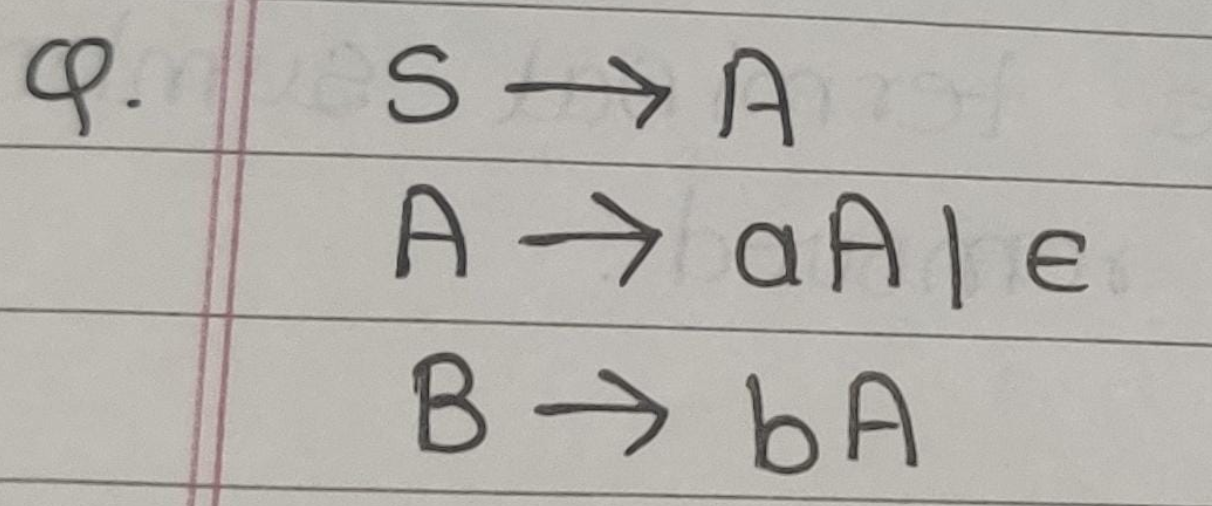 Q. S → A
A → aA | ε
B → bA